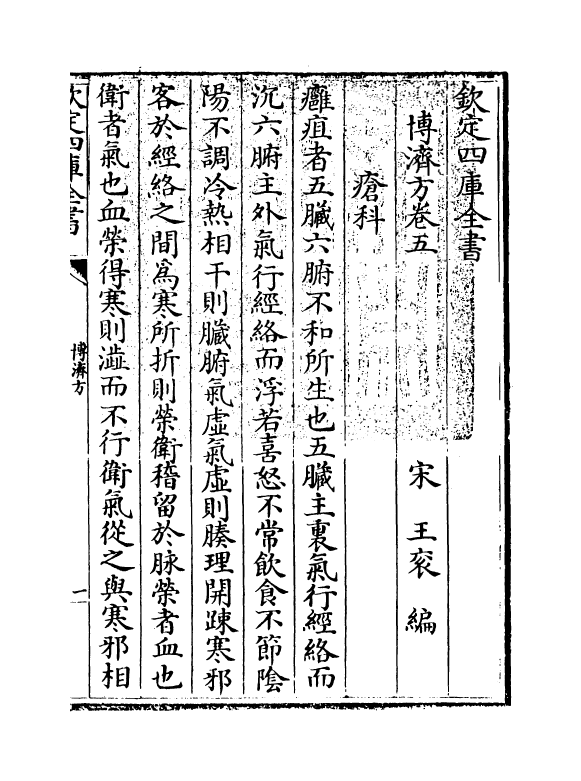 欽定四庫全書
博濟方卷五
宋 王衮 編
瘡科
癰疽者五臟六腑不和所生也五臟主裏氣行經絡而
沉六腑主外氣行經絡而浮若喜怒不常飲食不節陰
陽不調冷熱相干則臟腑氣虛氣虛則腠理開踈寒邪
客於經絡之間為寒所折則榮衛稽留於脉榮者血也
衛者氣也血榮得寒則澁而不行衛氣從之與寒邪相
欽定四庫全書
博濟方
一